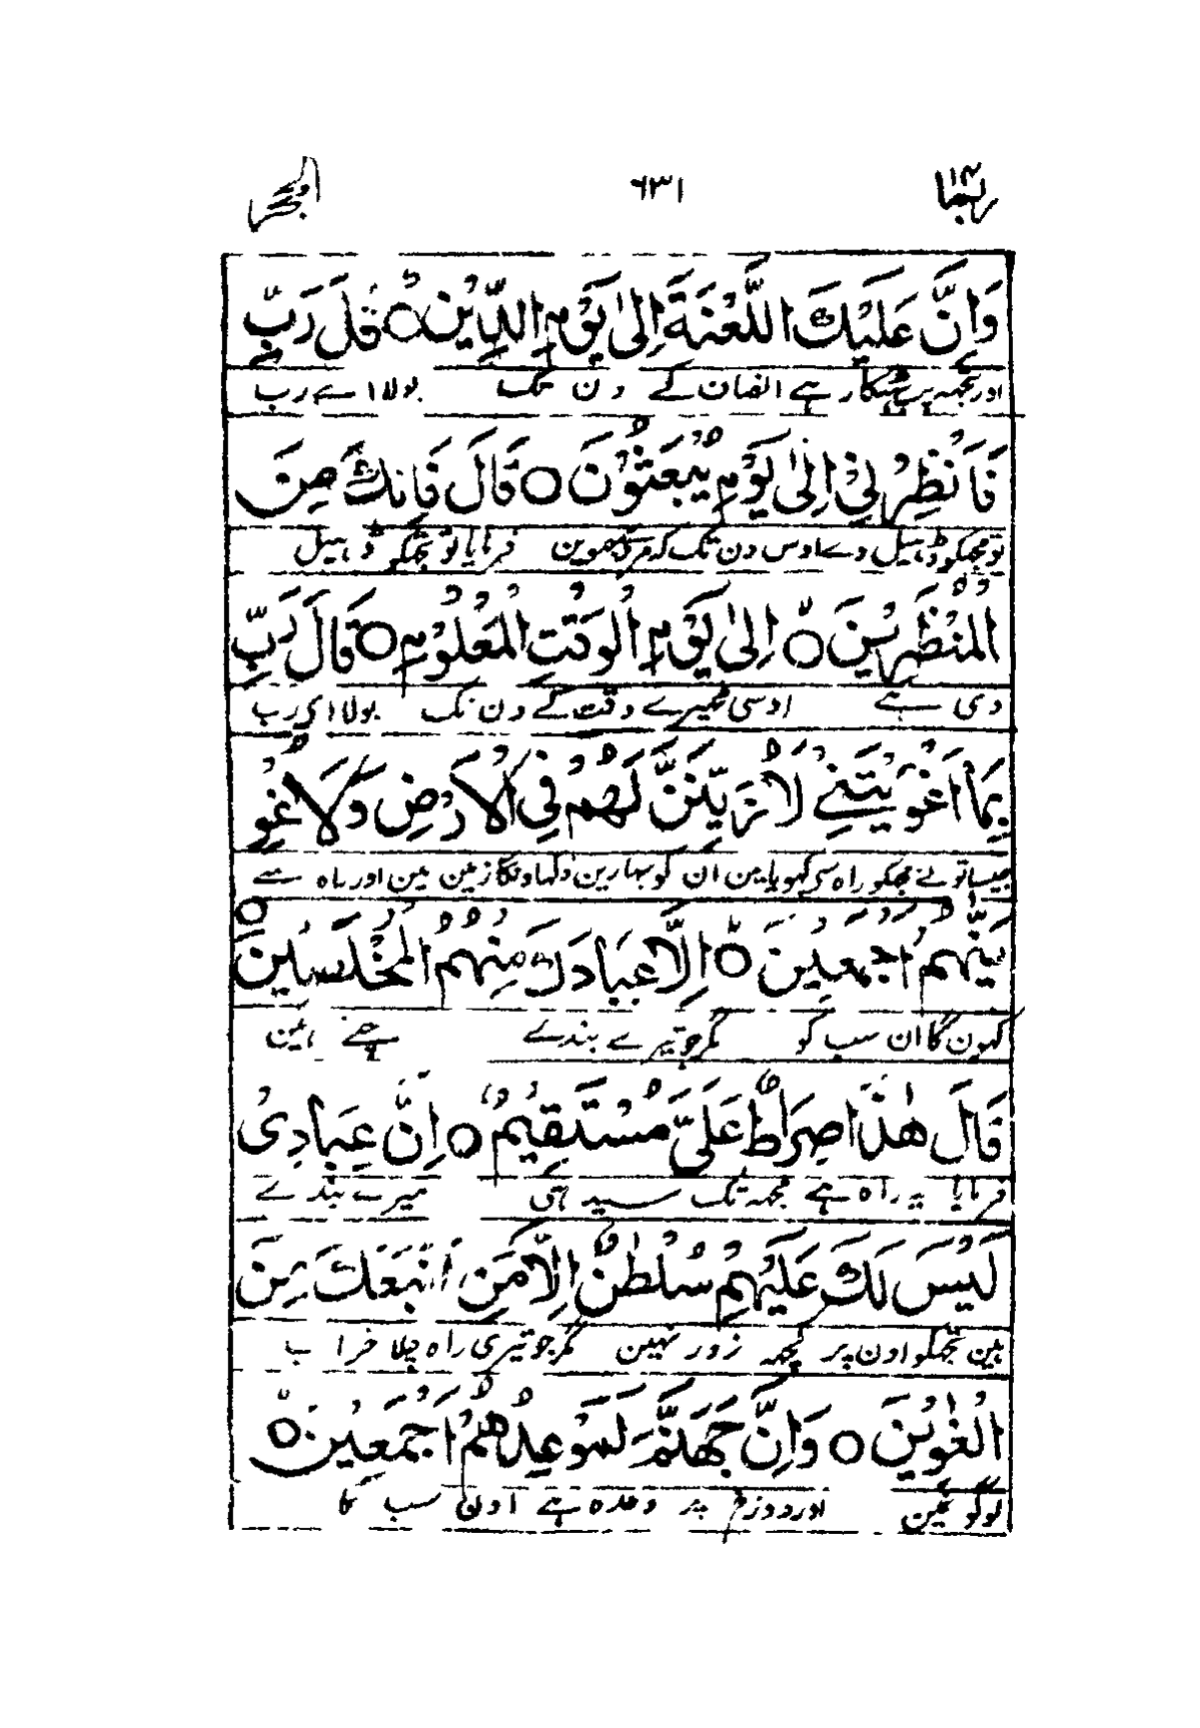 ربما ١٤ ٦٣١ الحجر
وَاِنَّ عَلَيْكَ اللَّعْنَةَ اِلٰى يَوْمِ الدِّيْنِ ○ قَالَ رَبِّ
اور تجھہ پر پھٹکار ہے انصاف کے دن تک بولا اے رب
فَاَنْظِرْنِيْ اِلٰى يَوْمِ يُبْعَثُوْنَ ○ قَالَ فَاِنَّكَ مِنَ
تو مجھکو ڈہیل دے اوس دن تک کہ مردے جیوین فرمایا تو تجھکو ڈہیل
الْمُنْظَرِيْنَ ○ اِلٰى يَوْمِ الْوَقْتِ الْمَعْلُوْمِ ○ قَالَ رَبِّ
دی ہے اوسی ٹھیرے وقت کے دن تک بولا ای رب
بِمَا اَغْوَيْتَنِيْ لَاُزَيِّنَنَّ لَهُمْ فِي الْاَرْضِ وَلَاُغْوِ
جیسا تو نے مجھکو راہ سی کھویا مین ان کو بہارین دکھاونگا زمین مین اور راہ سے
يَنَّهُمْ اَجْمَعِيْنَ ○ اِلَّا عِبَادَكَ مِنْهُمُ الْمُخْلَصِيْنَ ○
کہون گا ان سب کو مگر جو تیرے بندے چنے ہین
قَالَ هٰذَا صِرَاطٌ عَلَيَّ مُسْتَقِيْمٌ ○ اِنَّ عِبَادِيْ
فرمایا یہ راہ ہے مجھہ تک سیدہی میرے بندے
لَيْسَ لَكَ عَلَيْهِمْ سُلْطٰنٌ اِلَّا مَنِ اتَّبَعَكَ مِنَ
ہین تجھکو اون پر کچھہ زور نہین مگر جو تیری راہ چلا خراب
الْغٰوِيْنَ ○ وَاِنَّ جَهَنَّمَ لَمَوْعِدُهُمْ اَجْمَعِيْنَ ○
لوگو مین اور دوزخ پر وعدہ ہے اون سب کا